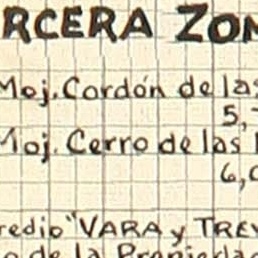 RCERA ZON
Moj. Cordón de las
5,
Moj. Cerro de las
6,0
redio "VARA y TREV
o de la Propiedad